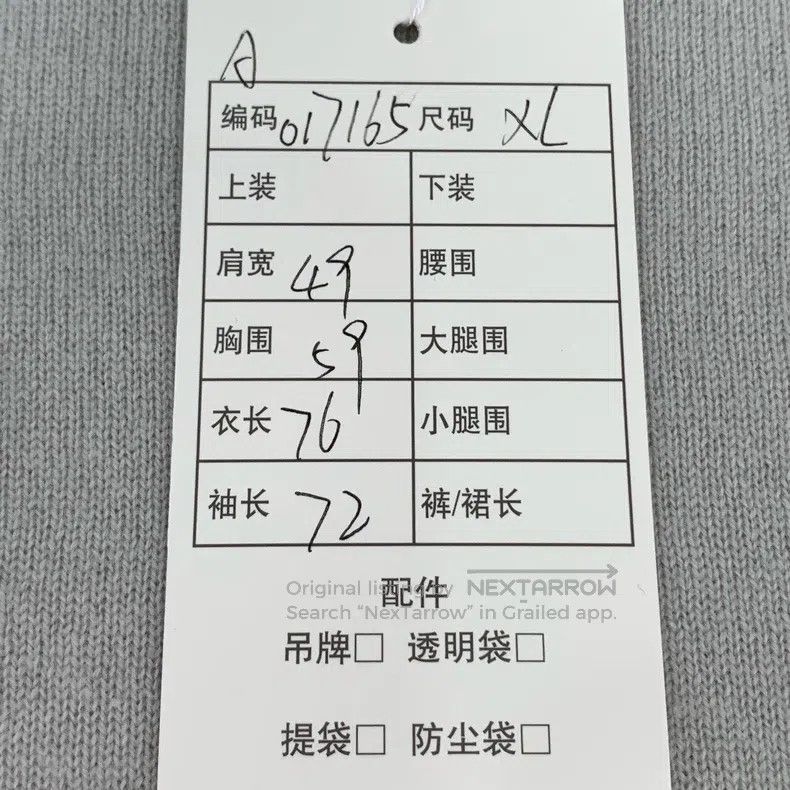 A
编码 017165 尺码 XL
上装 下装
肩宽 49 腰围
胸围 59 大腿围
衣长 76 小腿围
袖长 72 裤/裙长
配件
Original listing by NEXTARROW
Search “NexTarrow” in Grailed app.
吊牌□ 透明袋□
提袋□ 防尘袋□